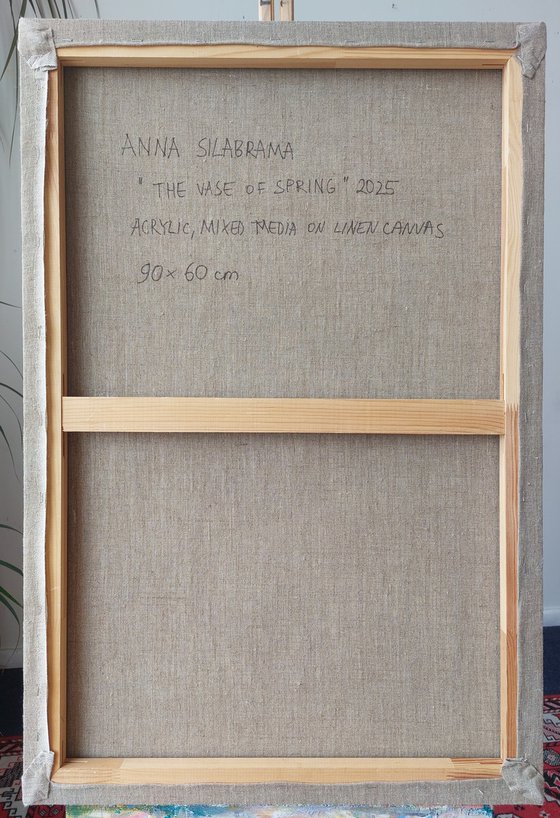 ANNA SILABRAMA
"THE VASE OF SPRING" 2025
ACRYLIC, MIXED MEDIA ON LINEN CANVAS
90 × 60 cm